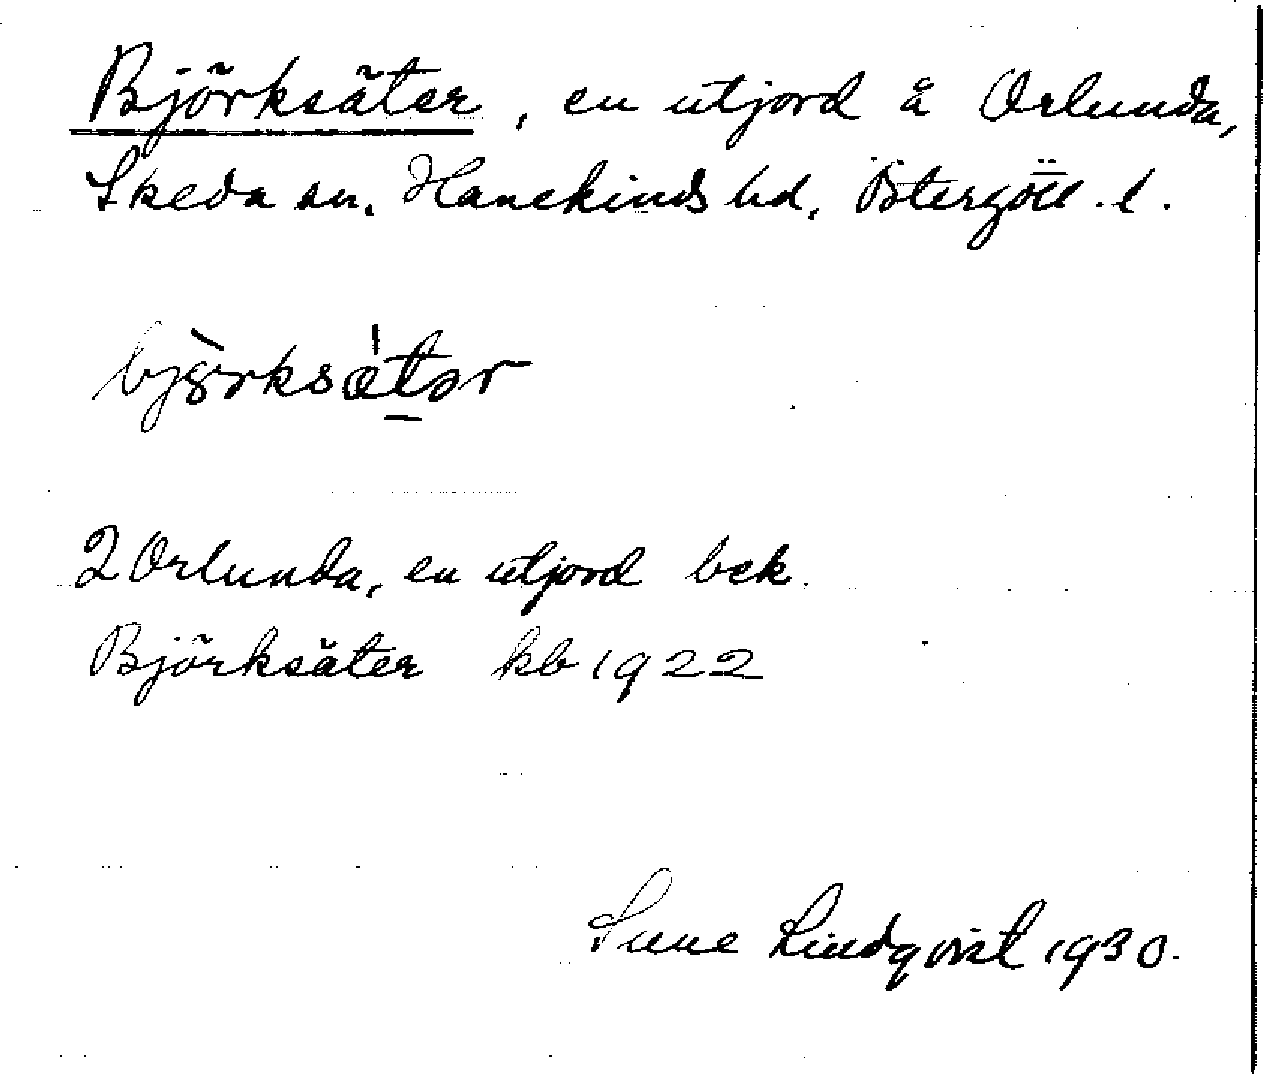 Björksäter, en utjord å Orlunda,
Skeda sn. Hanekinds hd, Östergötl. l.
bjö̀rksä̍tər
2 Orlunda, en utjord bek.
Björksäter kb 1922
Sune Lindqvist 1930.